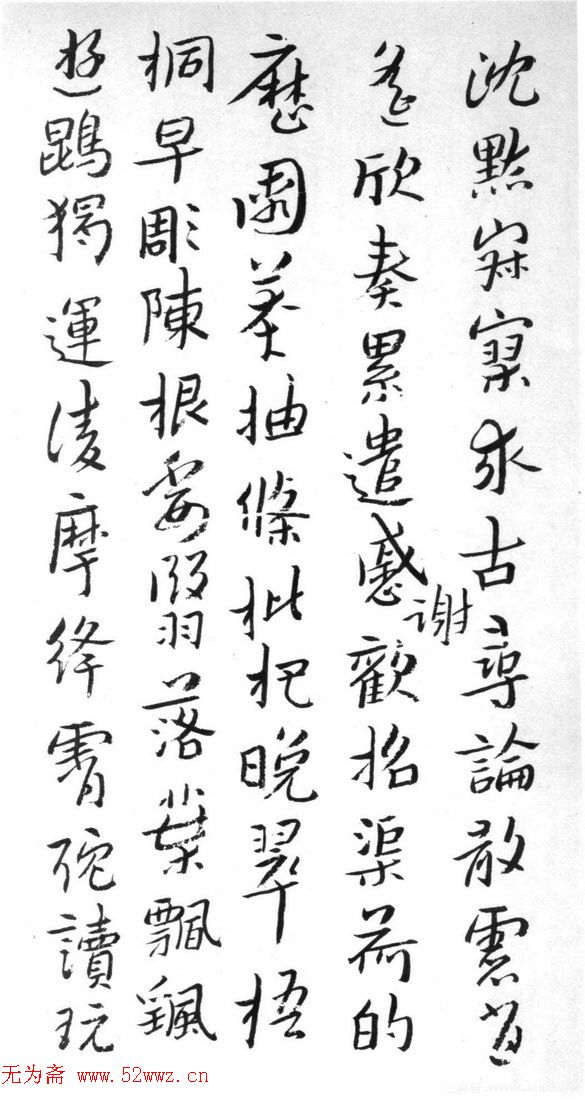 沈默寂寥求古尋論散慮逍
遙欣奏累遣慼謝歡招渠荷的
歷園莽抽條枇杷晚翠梧
桐早彫陳根委翳落葉飄颻
遊鵾獨運凌摩絳霄耽讀玩
无为斋 www.52wwz.cn